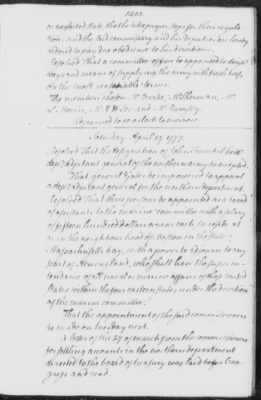 or neglected rule that he take proper steps for their regula
tion, and the said commissary and his deputies are hereby
ordered to pay due obedience to his direction.
Resolved That a committee of five be appointed to devise
ways and means of supplying the army with fresh beef,
on the most reasonable terms.
The members chosen Mr Duer, Mr Sherman, Mr
L. Morris, Mr R H Lee and Mr Rumsey.
Adjourned to 10 o'Clock to morrow.
Saturday April 19. 1777.
Resolved That the resignation of John Trumbull late
dep.y adjutant general of the northern army be accepted.
That general Gates be impowered to appoint
a dep.y adjutant general for the northern department.
Resolved That three persons be appointed as a board
of assistants to the marine committee with a salary
of fifteen hundred dollars a year each to reside at
or in the neighbourhood of Boston in the state of
Massachusetts bay, with a power to adjourn to any
part of New england, who shall have the superin
tendence of all naval or marine affairs of these united
states within the four eastern states under the direction
of the marine committee.
That the appointment of the said commissioners
be made on tuesday next.
A letter of the 27 of march from the commissioners
for settling accounts in the northern department
directed to the board of treasury was laid before Con
gress and read.